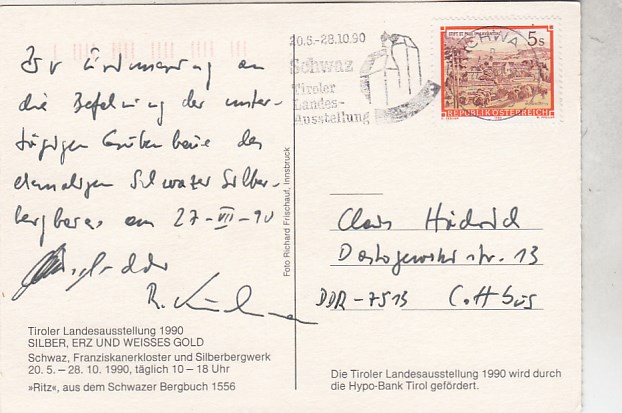 Zur Erinnerung an
die Befahrung der unter-
tägigen Grubenbaue des
ehemaligen Schwazer Silber-
bergbaues am 27-VII-90
R.
Tiroler Landesausstellung 1990
SILBER, ERZ UND WEISSES GOLD
Schwaz, Franziskanerkloster und Silberbergwerk
20. 5. – 28. 10. 1990, täglich 10 – 18 Uhr
»Ritz«, aus dem Schwazer Bergbuch 1556
Foto Richard Frischauf, Innsbruck
20.5.-28.10.90
Schwaz
Tiroler
Landes-
Ausstellung
SCHWAZ
5s
REPUBLIK ÖSTERREICH
Claus
Dostojewski str. 13
DDR-7513 Cottbus
Die Tiroler Landesausstellung 1990 wird durch
die Hypo-Bank Tirol gefördert.